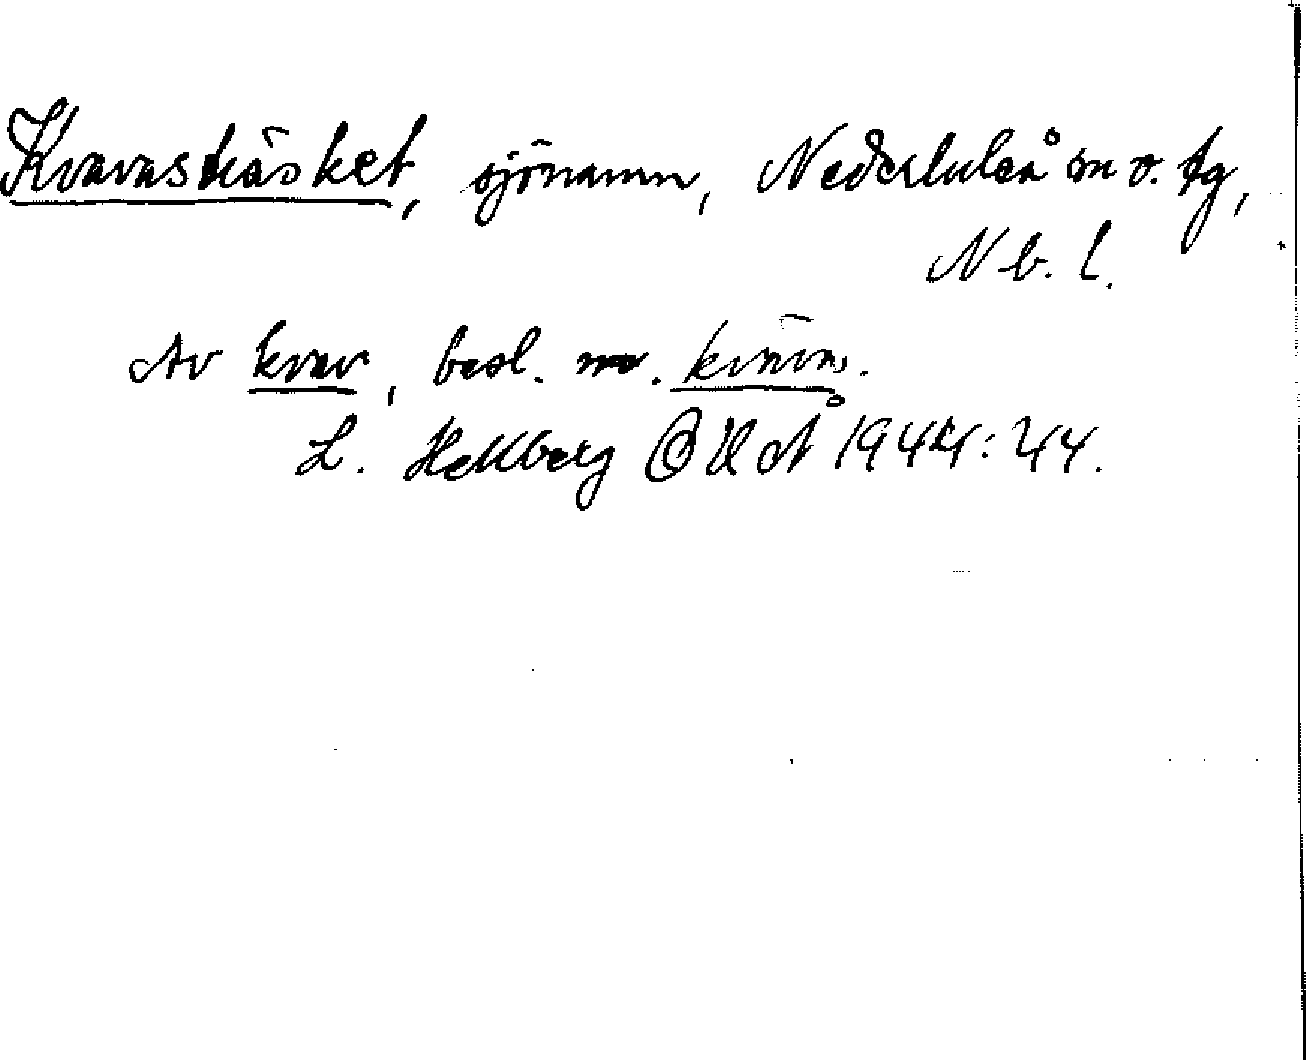 Kvavasträsket, sjönamn, Nederluleå sn o. tg,
Nb. l.
Av kvav, besl. m. kväva.
L. Hellberg OUÅ 1944: 44.